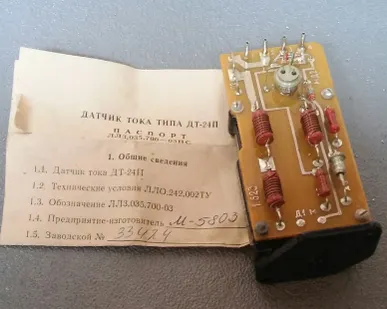 ДАТЧИК ТОКА ТИПА ДТ-24П
ПАСПОРТ
ЛЛ3.035.700—03ПС
1. Общие сведения
1.1. Датчик тока ДТ-24П
1.2. Технические условия ЛЛО.242.002ТУ
1.3. Обозначение ЛЛ3.035.700-03
1.4. Предприятие-изготовитель М-5803
1.5. Заводской № 33424